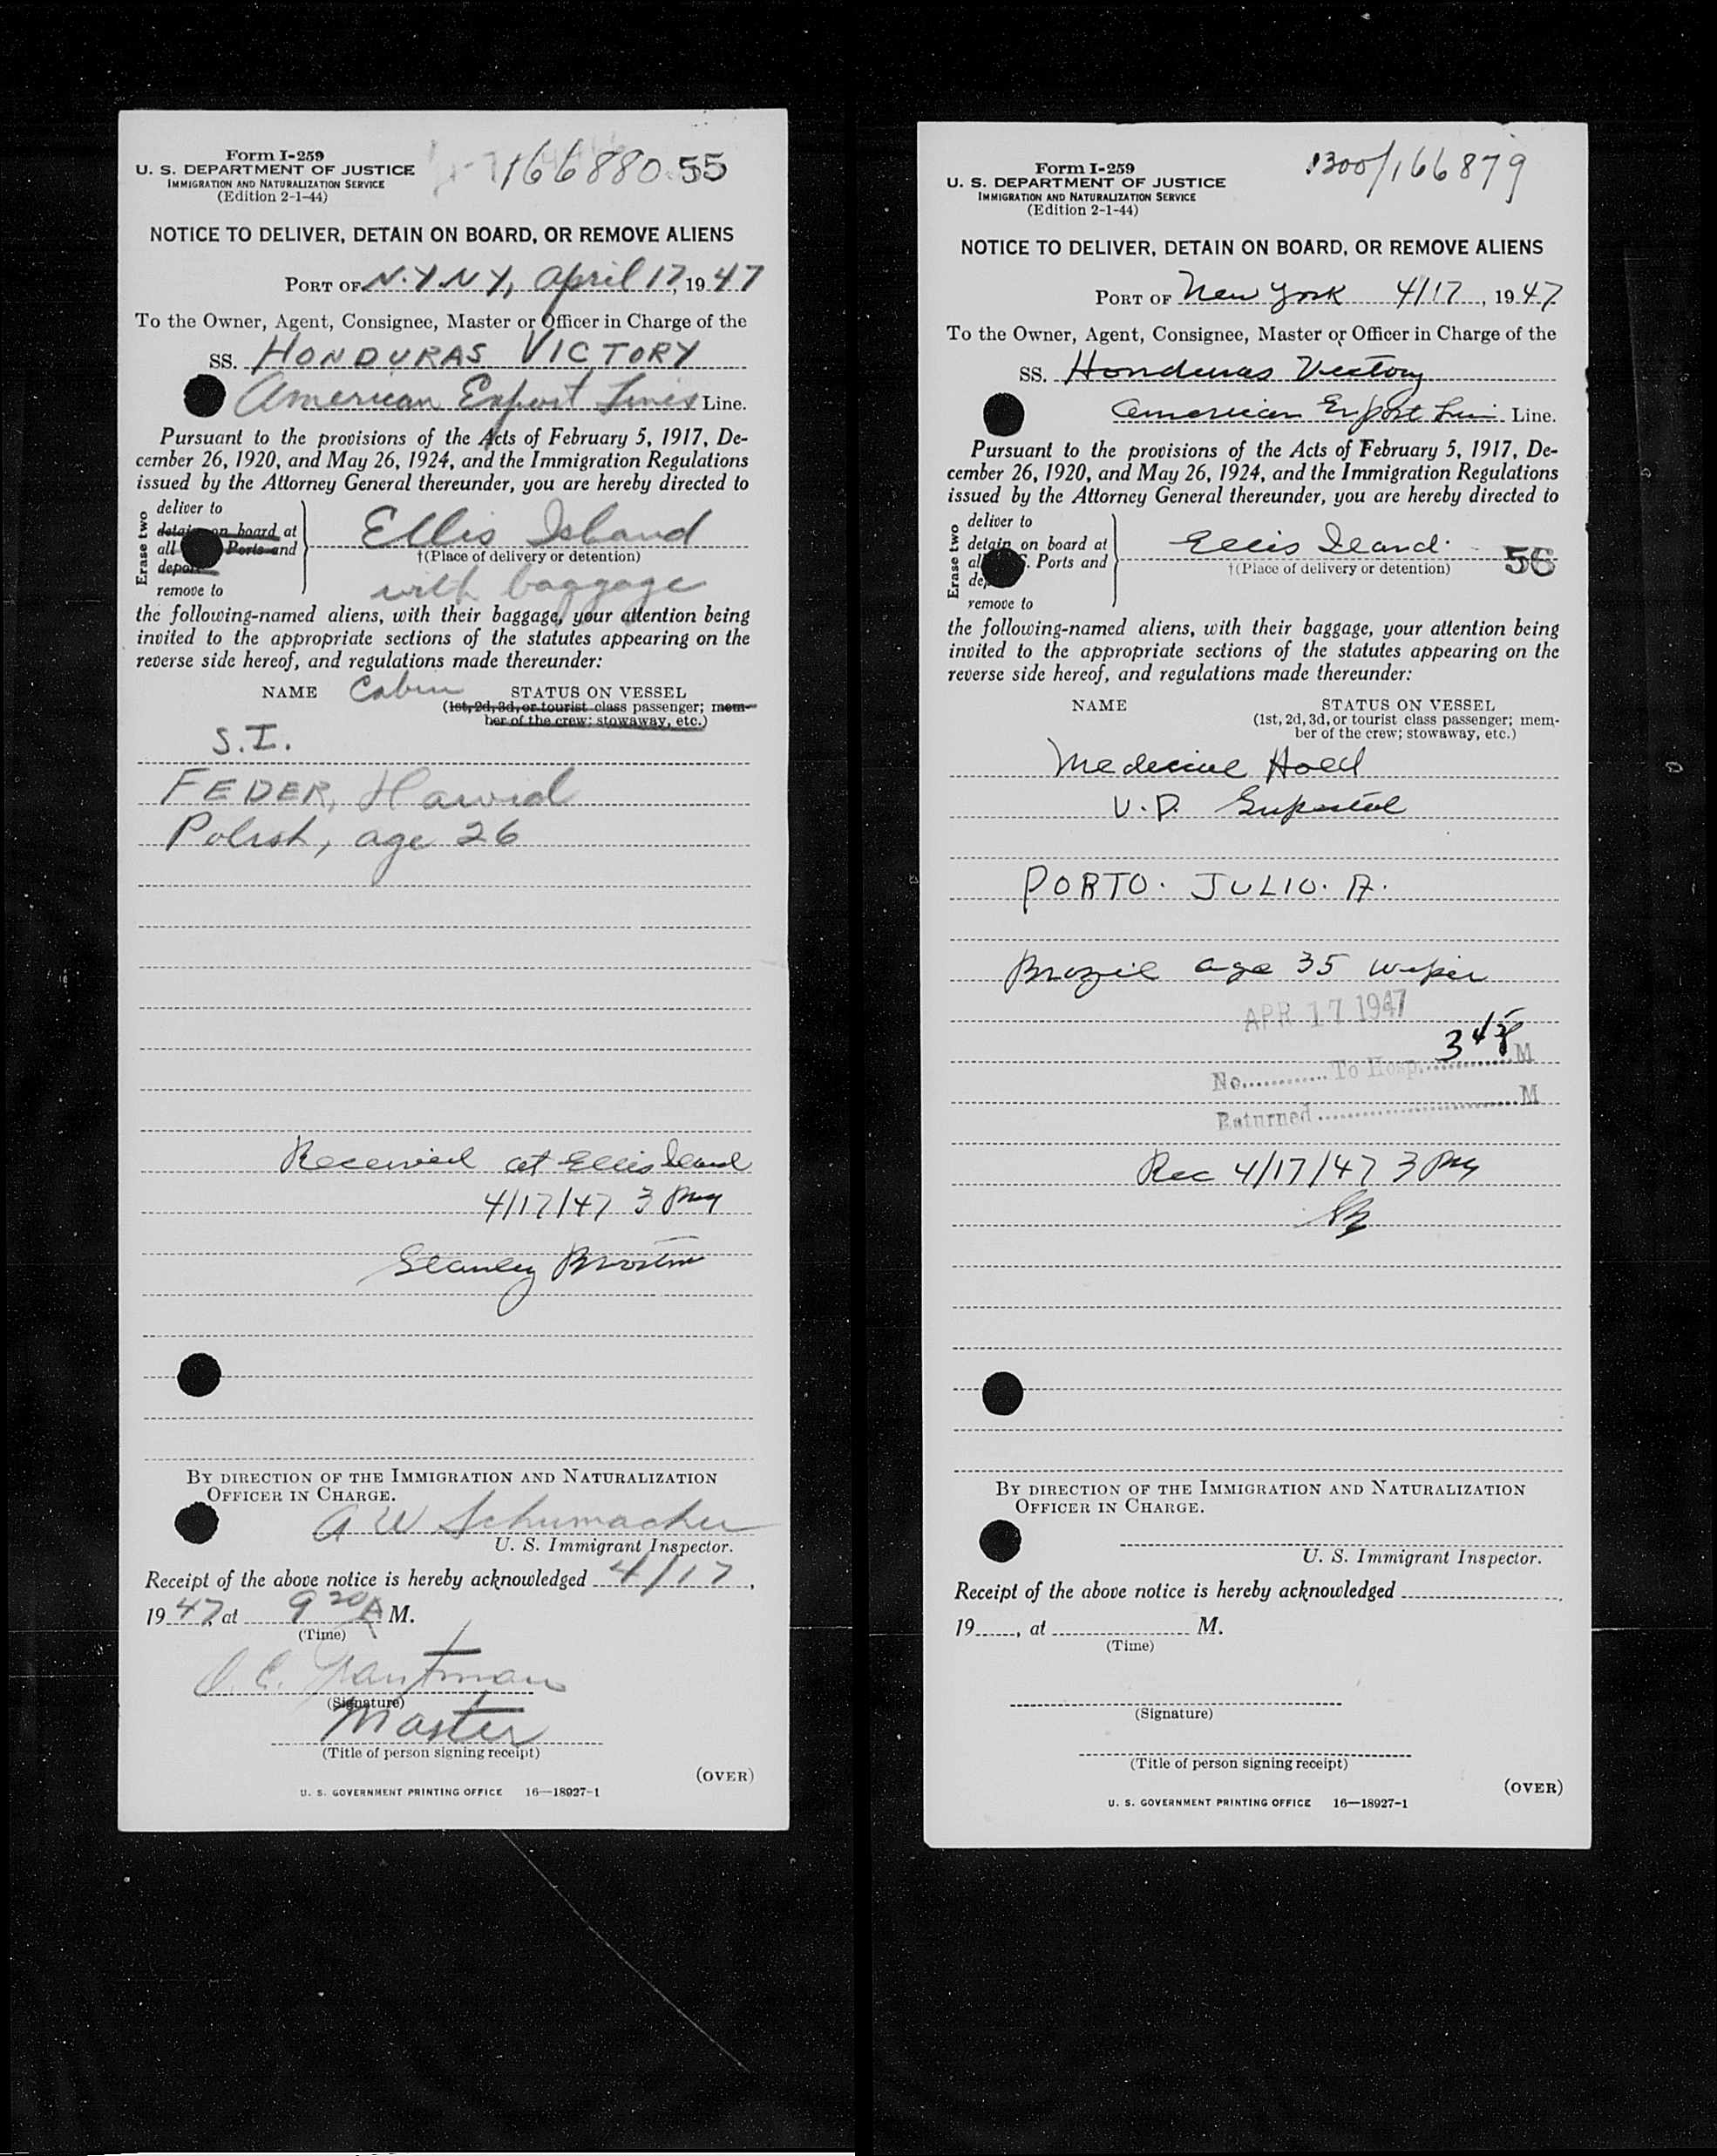 Form I-259
U. S. DEPARTMENT OF JUSTICE
IMMIGRATION AND NATURALIZATION SERVICE
(Edition 2-1-44)
166880 55
NOTICE TO DELIVER, DETAIN ON BOARD, OR REMOVE ALIENS
PORT OF N.Y. N.Y., April 17, 1947
To the Owner, Agent, Consignee, Master or Officer in Charge of the
SS. HONDURAS VICTORY
American Export Lines Line.
Pursuant to the provisions of the Acts of February 5, 1917, De-
cember 26, 1920, and May 26, 1924, and the Immigration Regulations
issued by the Attorney General thereunder, you are hereby directed to
Erase two
deliver to
detain on board at
all Ports and
remove to
Ellis Island
†(Place of delivery or detention)
with baggage
the following-named aliens, with their baggage, your attention being
invited to the appropriate sections of the statutes appearing on the
reverse side hereof, and regulations made thereunder:
NAME Cabin STATUS ON VESSEL
(1st, 2d, 3d, or tourist class passenger; mem-
ber of the crew; stowaway, etc.)
S.I.
FEDER,
Polish, age 26
Received at Ellis Island
4/17/47 3 PM
Stanley
BY DIRECTION OF THE IMMIGRATION AND NATURALIZATION
OFFICER IN CHARGE.
A W Schumacher
U. S. Immigrant Inspector.
Receipt of the above notice is hereby acknowledged 4/17,
1947, at 9 20 A M.
(Time)
(Signature)
Master
(Title of person signing receipt)
(OVER)
U. S. GOVERNMENT PRINTING OFFICE 16—18927-1
Form I-259
U. S. DEPARTMENT OF JUSTICE
IMMIGRATION AND NATURALIZATION SERVICE
(Edition 2-1-44)
1300/166879
NOTICE TO DELIVER, DETAIN ON BOARD, OR REMOVE ALIENS
PORT OF New York 4/17, 1947
To the Owner, Agent, Consignee, Master or Officer in Charge of the
SS. Honduras Victory
American Export Line.
Pursuant to the provisions of the Acts of February 5, 1917, De-
cember 26, 1920, and May 26, 1924, and the Immigration Regulations
issued by the Attorney General thereunder, you are hereby directed to
Erase two
deliver to
detain on board at
Ports and
remove to
Ellis Island
†(Place of delivery or detention)
56
the following-named aliens, with their baggage, your attention being
invited to the appropriate sections of the statutes appearing on the
reverse side hereof, and regulations made thereunder:
NAME STATUS ON VESSEL
(1st, 2d, 3d, or tourist class passenger; mem-
ber of the crew; stowaway, etc.)
V.D.
PORTO. JULIO. A.
Brazil age 35 wiper
APR 17 1947
No. To Hosp. 345 M
Returned M
Rec 4/17/47 3 PM
BY DIRECTION OF THE IMMIGRATION AND NATURALIZATION
OFFICER IN CHARGE.
U. S. Immigrant Inspector.
Receipt of the above notice is hereby acknowledged
19, at M.
(Time)
(Signature)
(Title of person signing receipt)
(OVER)
U. S. GOVERNMENT PRINTING OFFICE 16—18927-1